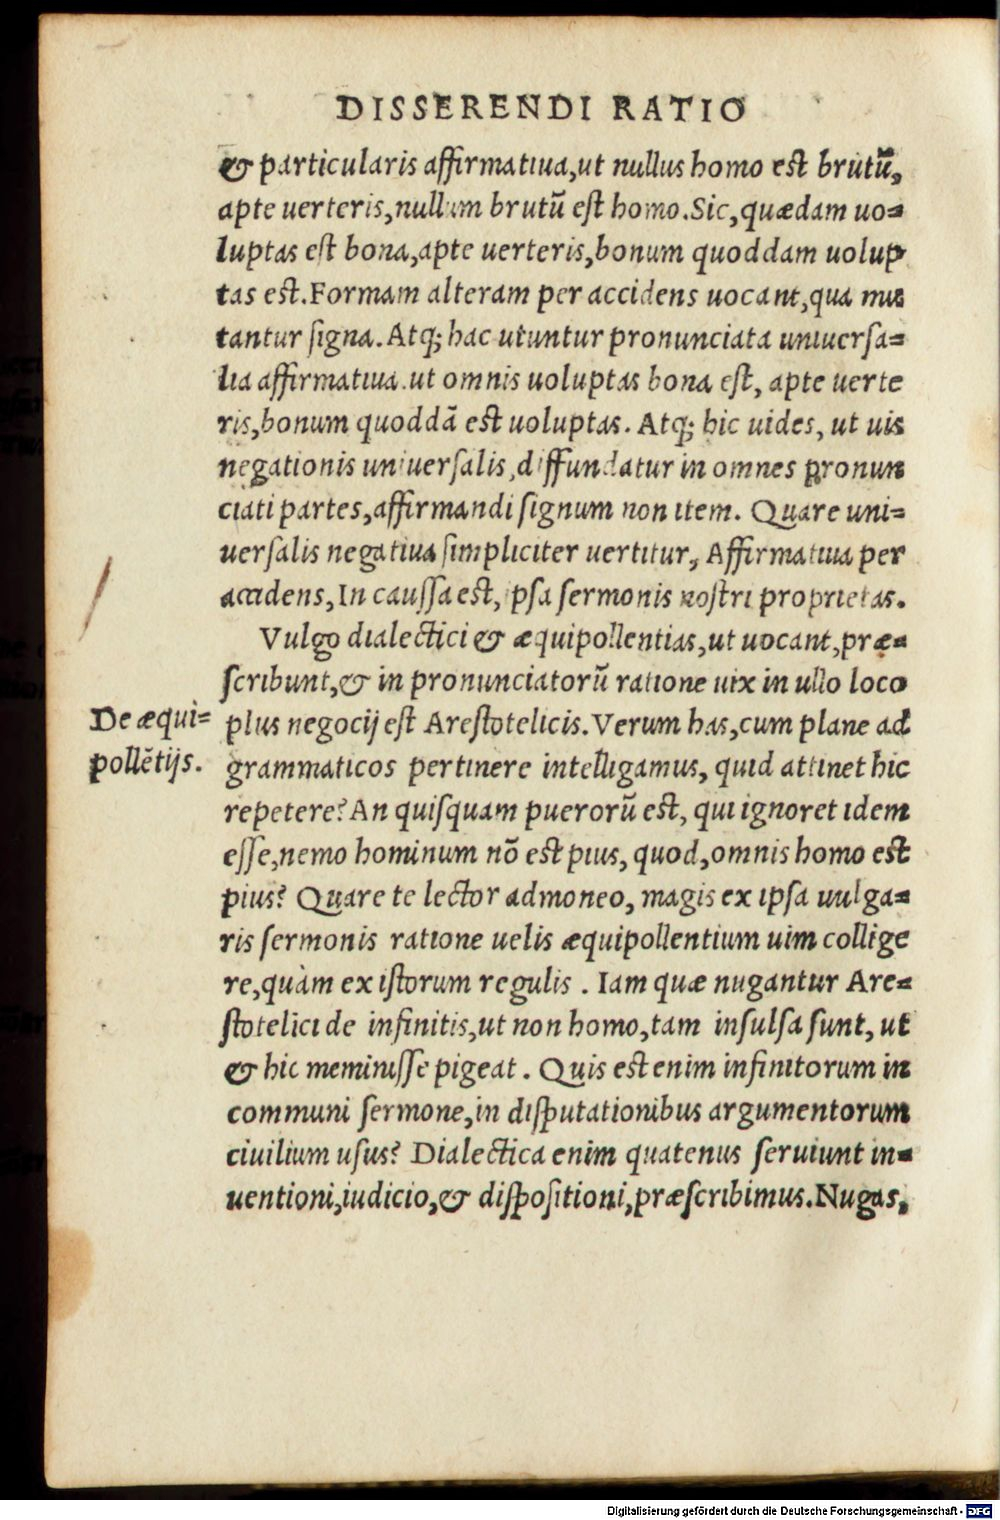 DISSERENDI RATIO
& particularis affirmatiua,ut nullus homo est brutū,
apte uerteris,nullum brutū est homo.Sic,quædam uo=
luptas est bona,apte uerteris,bonum quoddam uolup
tas est.Formam alteram per accidens uocant,qua mu
tantur signa. Atq; hac utuntur pronunciata uniuersa=
lia affirmatiua.ut omnis uoluptas bona est, apte uerte
ris,bonum quoddā est uoluptas. Atq; hic uides, ut uis
negationis uniuersalis,diffundatur in omnes pronun
ciati partes,affirmandi signum non item. Quare uni=
uersalis negatiua simpliciter uertitur, Affirmatiua per
accidens,In caussa est, ipsa sermonis nostri proprietas.
Vulgo dialectici & æquipollentias,ut uocant,præ=
scribunt,& in pronunciatorū ratione uix in ullo loco
De æqui=
pollētijs.
plus negocij est Arestotelicis.Verum has,cum plane ad
grammaticos pertinere intelligamus, quid attinet hic
repetere?An quisquam puerorū est, qui ignoret idem
esse,nemo hominum nō est pius, quod,omnis homo est
pius? Quare te lector admoneo, magis ex ipsa uulga=
ris sermonis ratione uelis æquipollentium uim collige
re,quàm ex istorum regulis . Iam quæ nugantur Are=
stotelici de infinitis,ut non homo,tam insulsa sunt, ut
& hic meminisse pigeat . Quis est enim infinitorum in
communi sermone,in disputationibus argumentorum
ciuilium usus? Dialectica enim quatenus seruiunt in=
uentioni,iudicio,& dispositioni,præscribimus.Nugas,
Digitalisierung gefördert durch die Deutsche Forschungsgemeinschaft - DFG